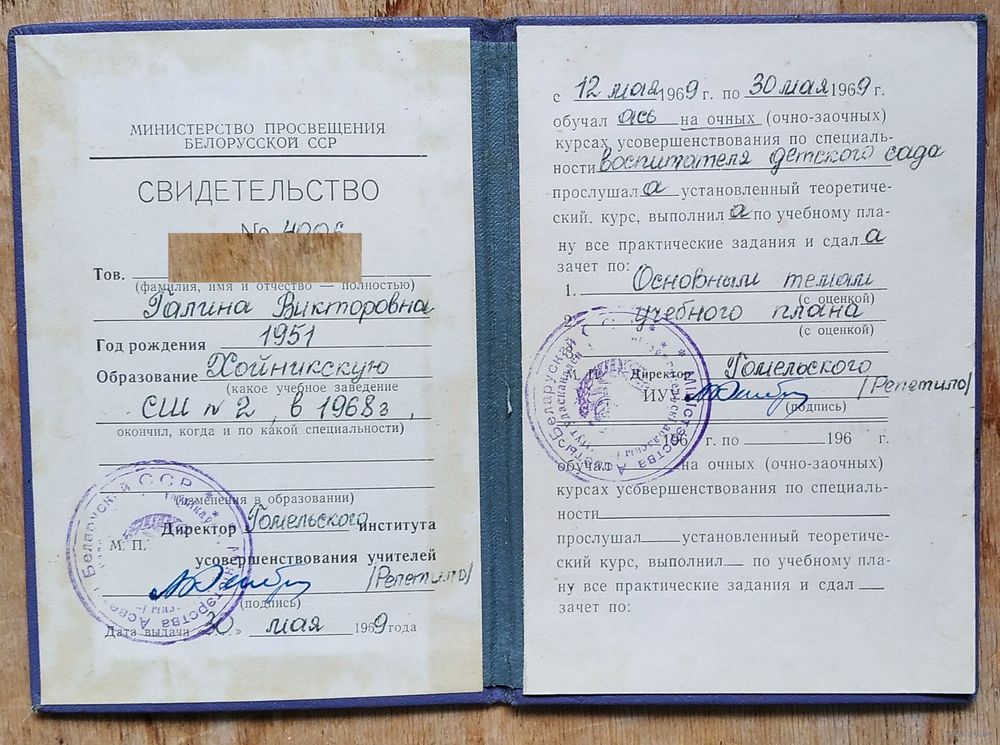 МИНИСТЕРСТВО ПРОСВЕЩЕНИЯ
БЕЛОРУССКОЙ ССР
СВИДЕТЕЛЬСТВО
№ 4006
Тов.
(фамилия, имя и отчество — полностью)
Галина Викторовна
Год рождения 1951
Образование Хойникскую
(какое учебное заведение
СШ № 2, в 1968 г,
окончил, когда и по какой специальности)
(изменения в образовании)
Директор Гомельского института
М. П.
усовершенствования учителей
(Репетило)
(подпись)
Дата выдачи «30.» мая 1969 года
Беларускай ССР
Міністэрства Асветы
с 12 мая 1969 г. по 30 мая 1969 г.
обучалась на очных (очно-заочных)
курсах усовершенствования по специаль-
ности воспитателя детского сада
прослушала установленный теоретиче-
ский. курс, выполнила по учебному пла-
ну все практические задания и сдала
зачет по:
1. Основным темам
(с оценкой)
2. учебного плана
(с оценкой)
3.
М. П. Директор Гомельского
ИУУ (Репетило)
(подпись)
196 г. по 196 г.
обучал на очных (очно-заочных)
курсах усовершенствования по специаль-
ности
прослушал установленный теоретиче-
ский курс, выполнил по учебному пла-
ну все практические задания и сдал
зачет по:
Міністэрства Асветы Беларускай ССР